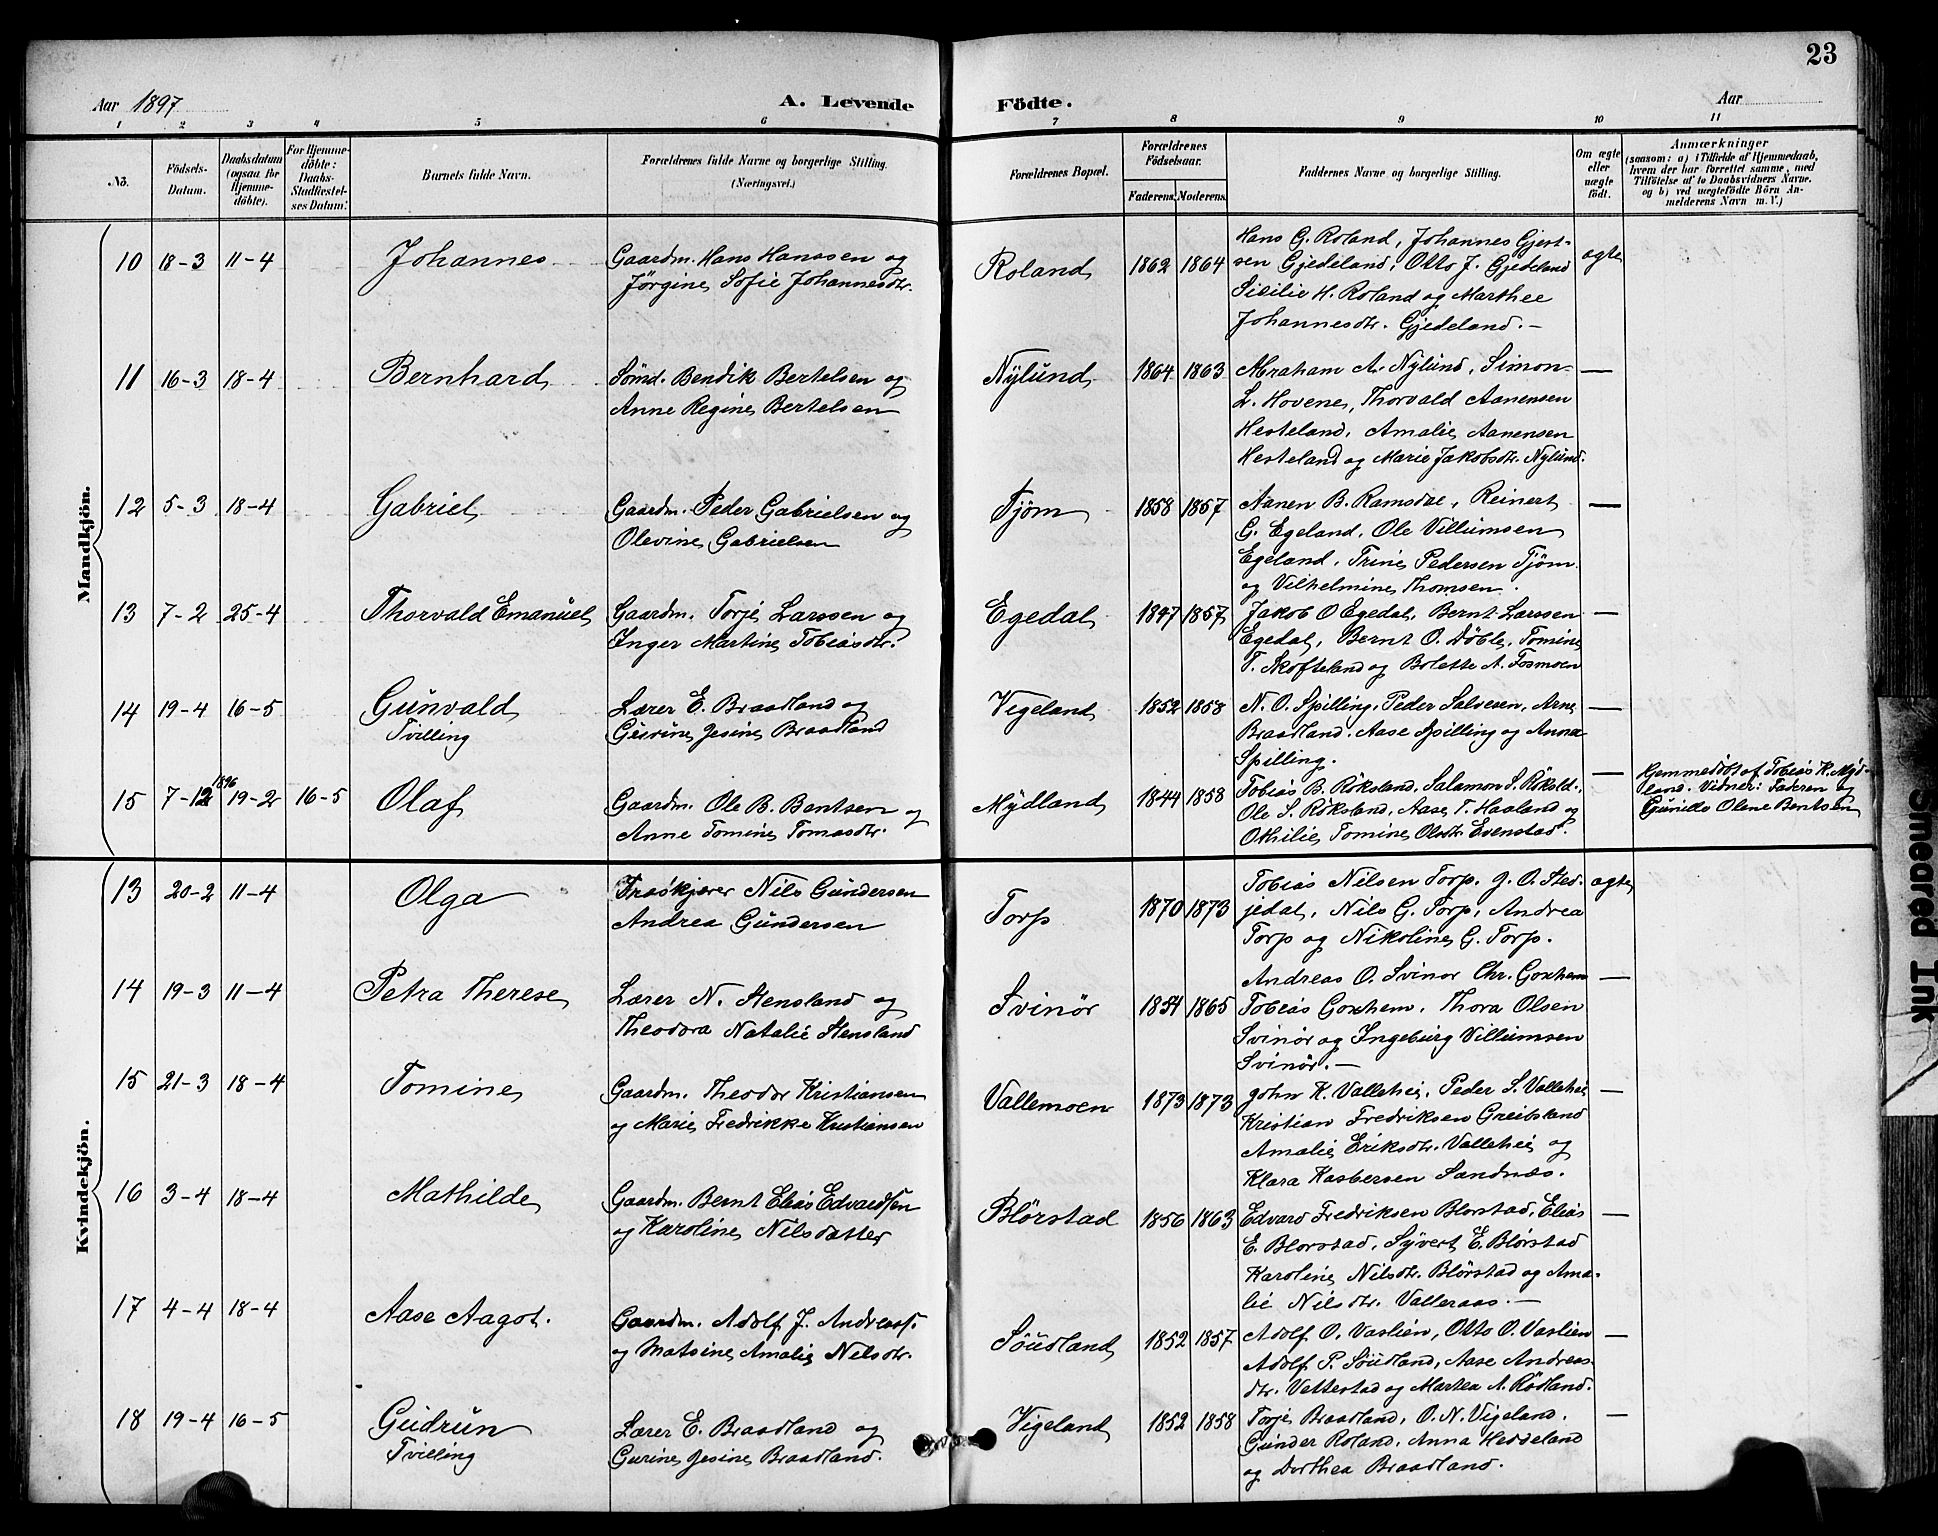 23
Aar 1897
A. Levende Födte.
Aar
1 2 3 4 5 6 7 8 9 10 11
No.
Födsels-Datum.
Daabsdatum (ogsaa for Hjemme-döbte).
For Hjemme-döbte: Daabs-Stadfæstel-ses Datum.
Barnets fulde Navn.
Forældrenes fulde Navne og borgerlige Stilling. (Næringsvei.)
Forældrenes Bopæl.
Forældrenes Födselsaar.
Faderens. Moderens.
Faddernes Navne og borgerlige Stilling.
Om ægte eller uægte födt.
Anmærkninger
(saasom: a) i Tilfælde af Hjemmedaab,
hvem der har forrettet samme, med
Tilföielse af to Daabsvidners Navne.
og b) ved uægtefödte Börn An-
melderens Navn m. V.)
Mandkjön.
10 18-3 11-4 Johannes
Gaardm. Hans Hanssen og
Jörgine Sofie Johannesdtr.
Roland 1862 1864
Hans G. Roland, Johannes Gjert-
sen Gjedeland, Otto J. Gjedeland
Sicilie H. Roland og Marthee
Johannesdtr. Gjedeland. —
ægte
11 16-3 18-4 Bernhard
Sömd. Bendik Bertelsen og
Anne Regine Bertelsen
Nylund 1864 1863
Abraham A. Nylund, Simon
L. Hovene, Thorvald Aanensen
Hesteland, Amalie Aanensen
Hesteland og Marie Jakobsdtr. Nylund.
—
12 5-3 18-4 Gabriel
Gaardm. Peder Gabrielsen og
Olevine Gabrielsen
Tjöm 1858 1857
Aanen B. Ramsdal, Reinert
G. Egeland, Ole Villumsen
Egeland, Trine Pedersen Tjöm
og Vilhelmine Thomsen.
—
13 7-2 25-4 Thorvald Emanuel
Gaardm. Torje Larssen og
Inger Martine Tobiasdtr.
Egedal 1847 1857
Jakob O Egedal, Bernt Larssen
Egedal, Bernt O. Döble, Tomine
T. Skofteland og Bolette A. Tosmoen
—
14 19-4 16-5 Gunvald
Tvilling
Lærer E. Braadland og
Gurine Jesine Braadland
Vigeland 1852 1858
N. O. Spilling, Peder Salvesen, Arne
Braadland, Aase Spilling og Anna
Spilling.
—
15 7-12 1896 19-2 16-5 Olaf
Gaardm. Ole B. Bentsen og
Anne Tomine Tomasdtr.
Mydland 1844 1858
Tobias B. Röksland, Salamon S. Röksld.,
Ole S. Röksland, Aase T. Haaland og
Othilie Tomine Olsdtr Evenstad.
—
Hjemmedöbt af Tobias K. Myd-
land. Vidner: Faderen og
Gunille Olene Bentsen
Kvindekjön.
13 20-2 11-4 Olga
Træskjærer Nils Gundersen
Andrea Gundersen
Torp 1870 1873
Tobias Nilsen Torp, G. O. Sted-
jedal, Nils G. Torp, Andrea
Torp og Nikoline G. Torp.
ægte
14 19-3 11-4 Petra Therese
Lærer N. Stensland og
Theodora Natalie Stensland
Svinör 1854 1865
Andreas O. Svinör Chr. Goxhem
Tobias Goxhem, Thora Olsen
Svinör og Ingeburg Villumsen
Svinör. —
—
15 21-3 18-4 Tomine
Gaardm. Theodor Kristiansen
og Marie Fredrikke Kristiansen
Vallemoen 1873 1873
John K. Vallehei, Peder S. Vallehei
Kristian Fredriksen Greibsland
Amalie Eriksdtr. Vallehei og
Klara Kasbersen Sandnæs.
—
16 3-4 18-4 Mathilde
Gaardm. Bernt Elias Edvardsen
og Karoline Nilsdatter
Blörstad 1856 1863
Edvard Fredriksen Blorstad, Elias
E. Blorstad, Syvert E. Blörstad
Karoline Nilsdtr. Blörstad og Ama-
lie Nilsdtr. Valleraas. —
—
17 4-4 18-4 Aase Aagot.
Gaardm. Adolf J. Andreass.
og Matsine Amalie Nilsdtr.
Söudland 1852 1857
Adolf O. Vaslien, Otto O. Vaslien
Adolf P. Söudland, Aase Andreas-
dtr. Vettestad og Martea A. Rödland.
—
18 19-4 16-5 Gudrun
Tvilling
Lærer E. Braadland og
Gurine Jesine Braadland.
Vigeland 1852 1858
Torje Braadland, O. N. Vigeland.
Gunder Roland, Anna Heddeland
og Dorthea Braadland.
—
Smeared Ink